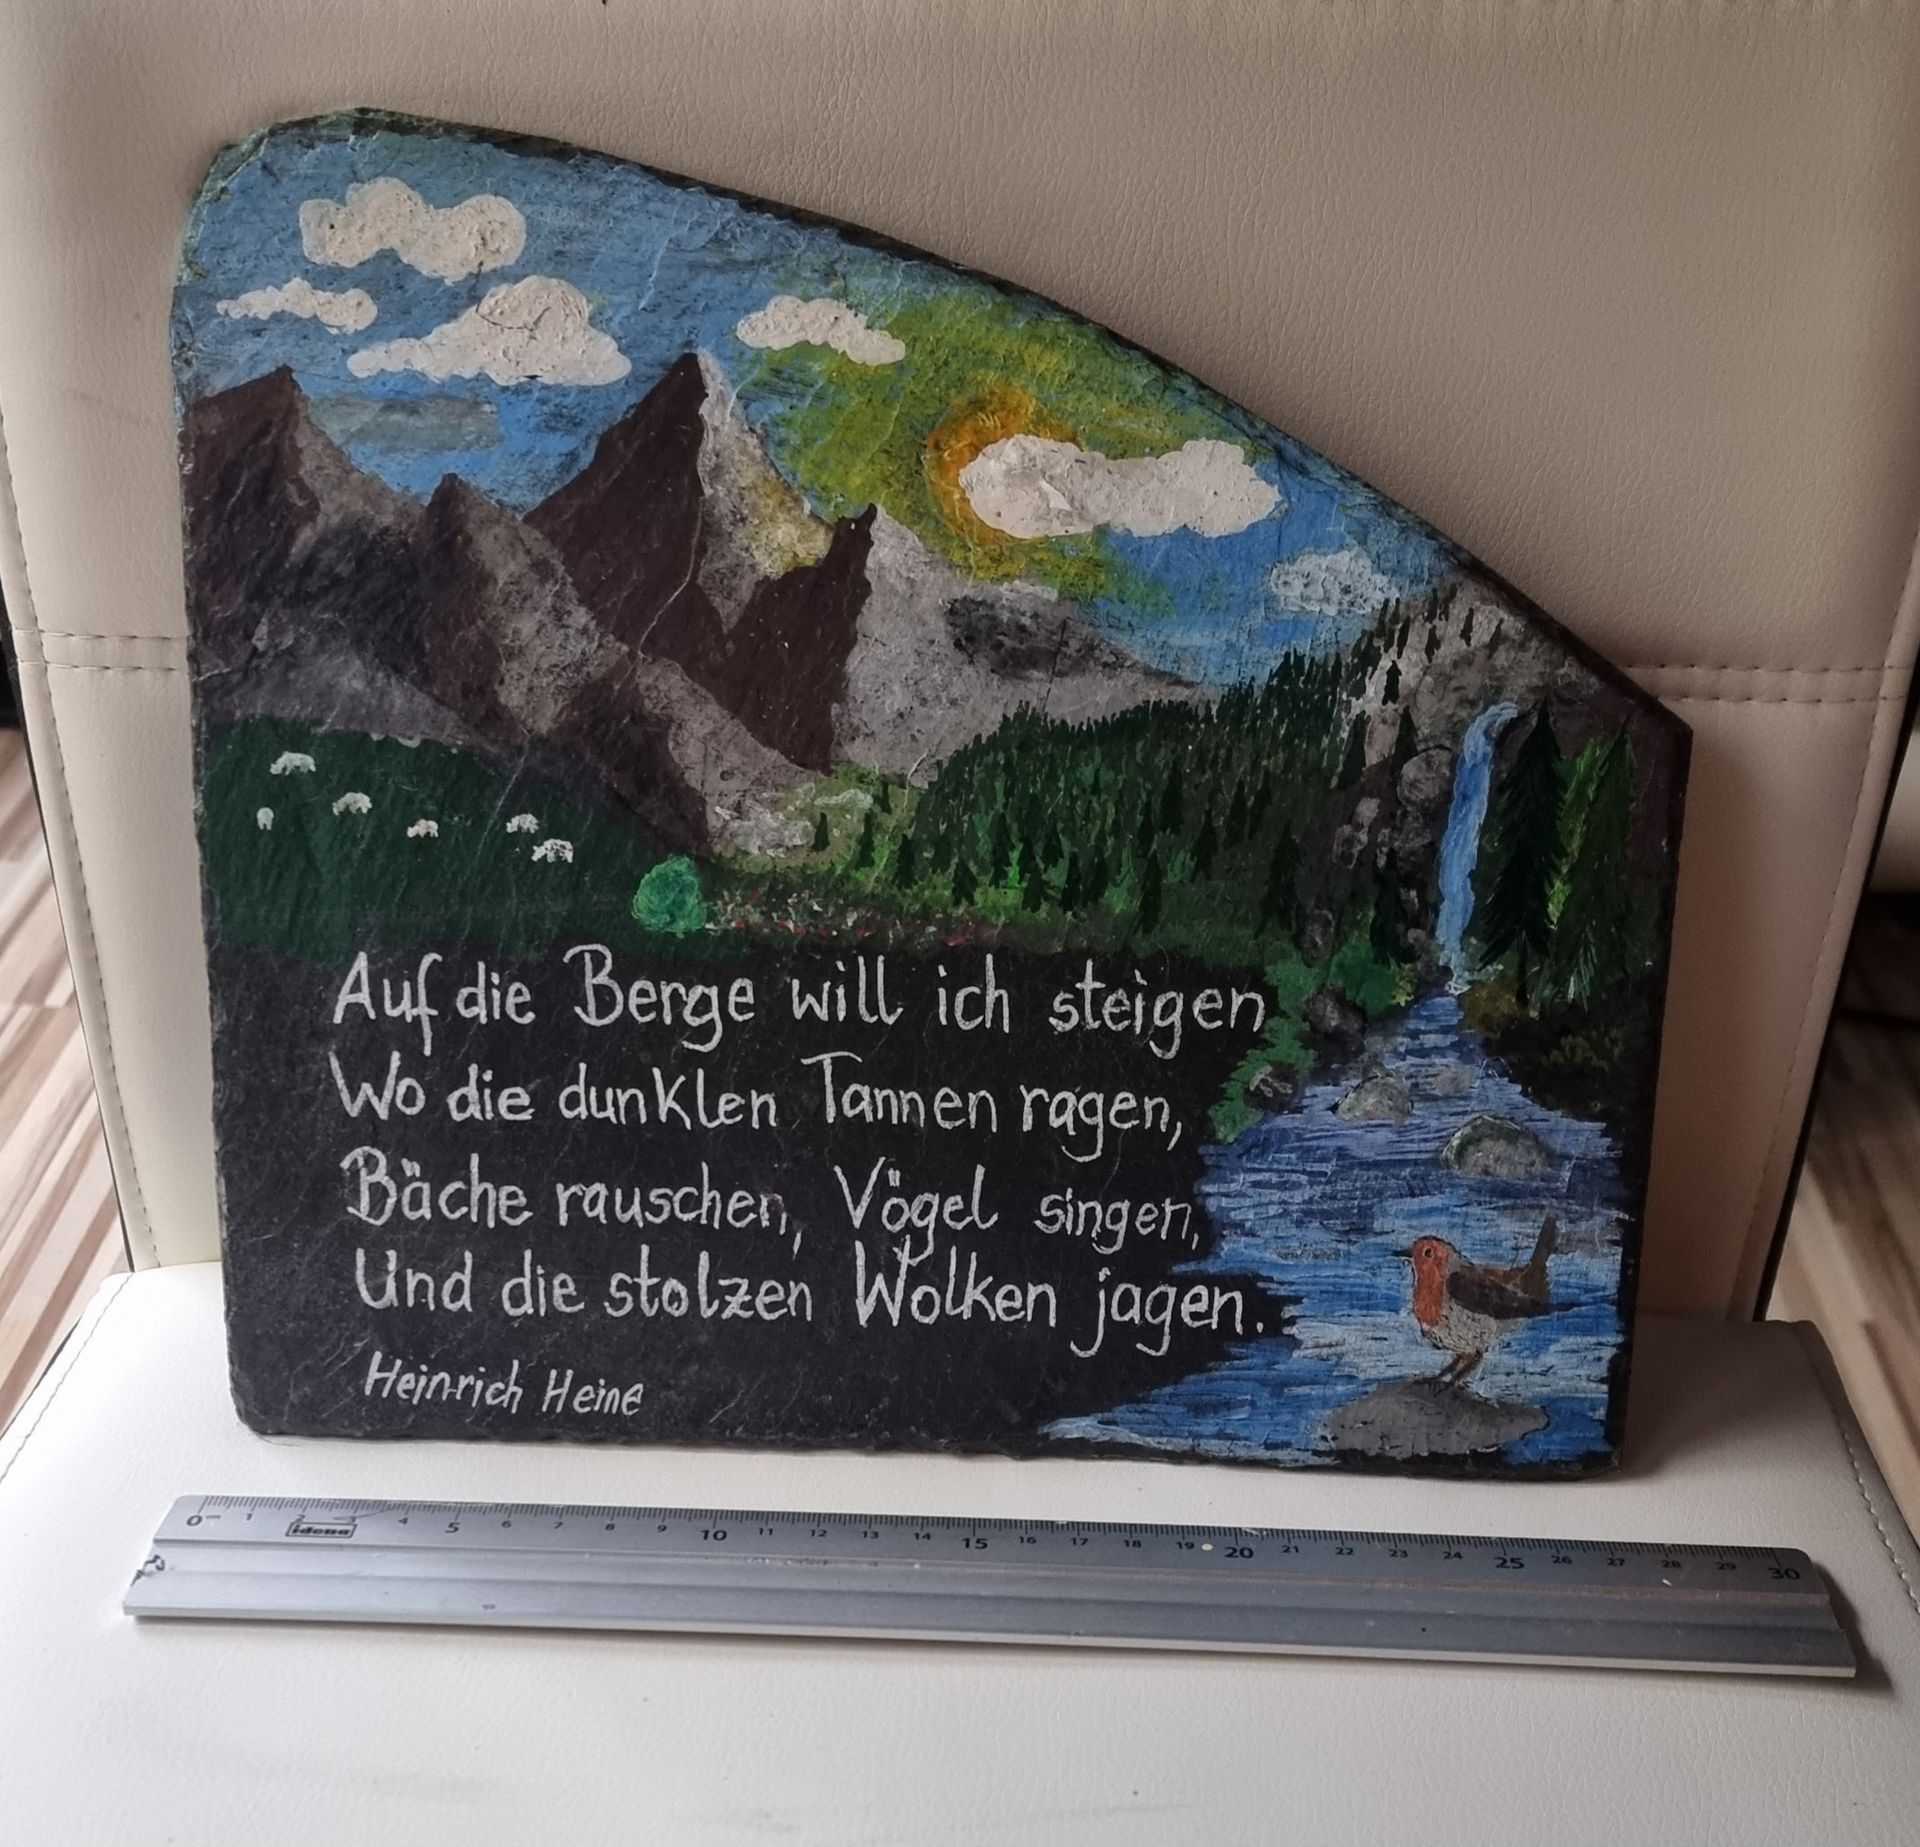 Auf die Berge will ich steigen
Wo die dunklen Tannen ragen,
Bäche rauschen, Vögel singen,
Und die stolzen Wolken jagen.
Heinrich Heine
0 1 2 3 4 5 6 7 8 9 10 11 12 13 14 15 16 17 18 19 20 21 22 23 24 25 26 27 28 29 30
idena